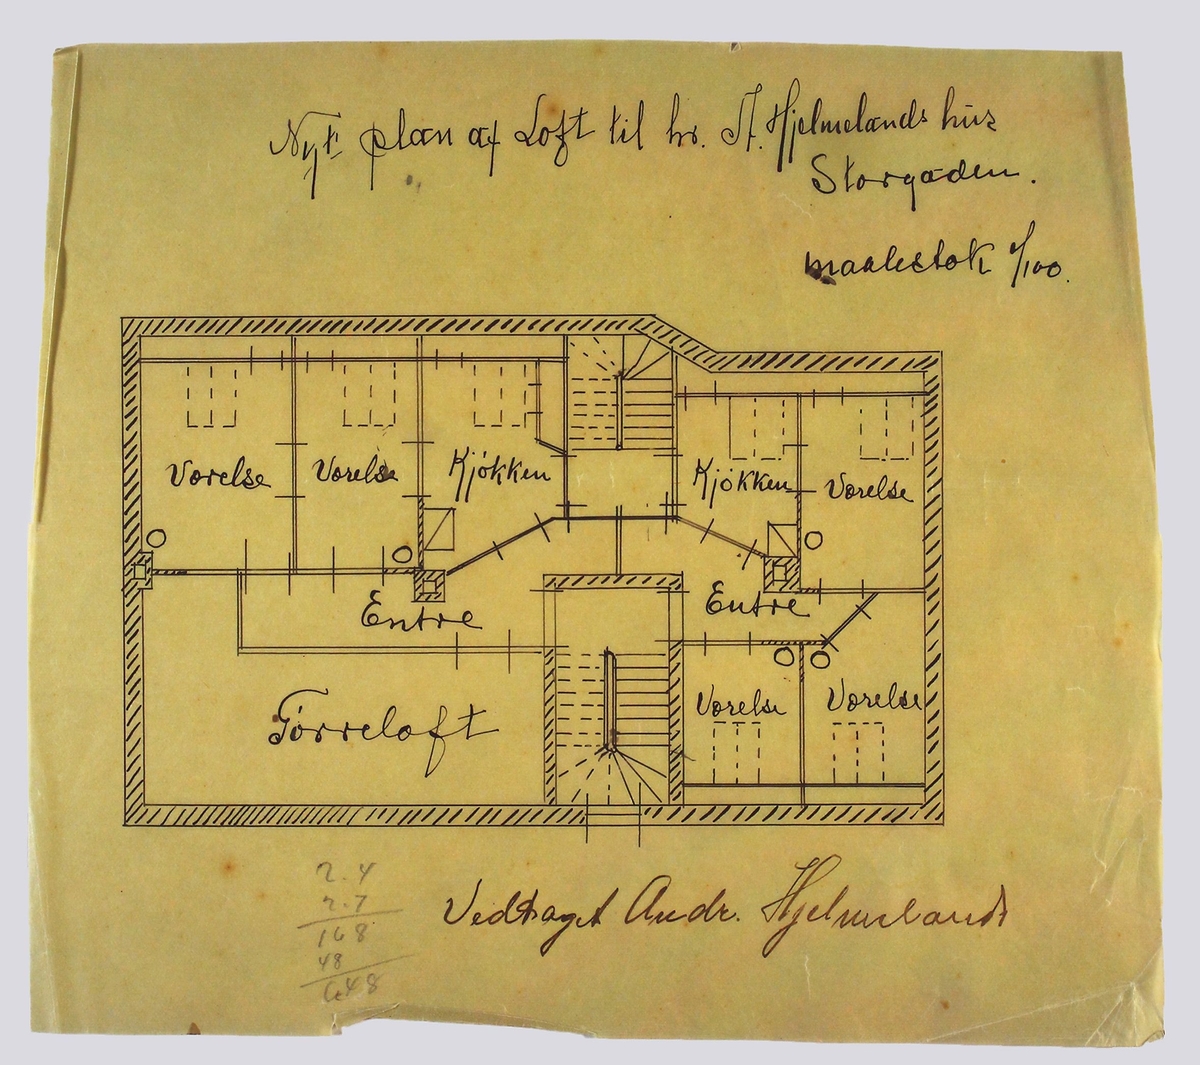 Nyt plan af Loft til hr. A. Hjelmelands hus
Storgaden.
maalestok 1/100.
Værelse
Værelse
Kjøkken
Kjøkken
Værelse
Entre
Entre
Tørreloft
Værelse
Værelse
2.4
2.7
168
48
6.48
Vedtaget Andr. Hjelmeland